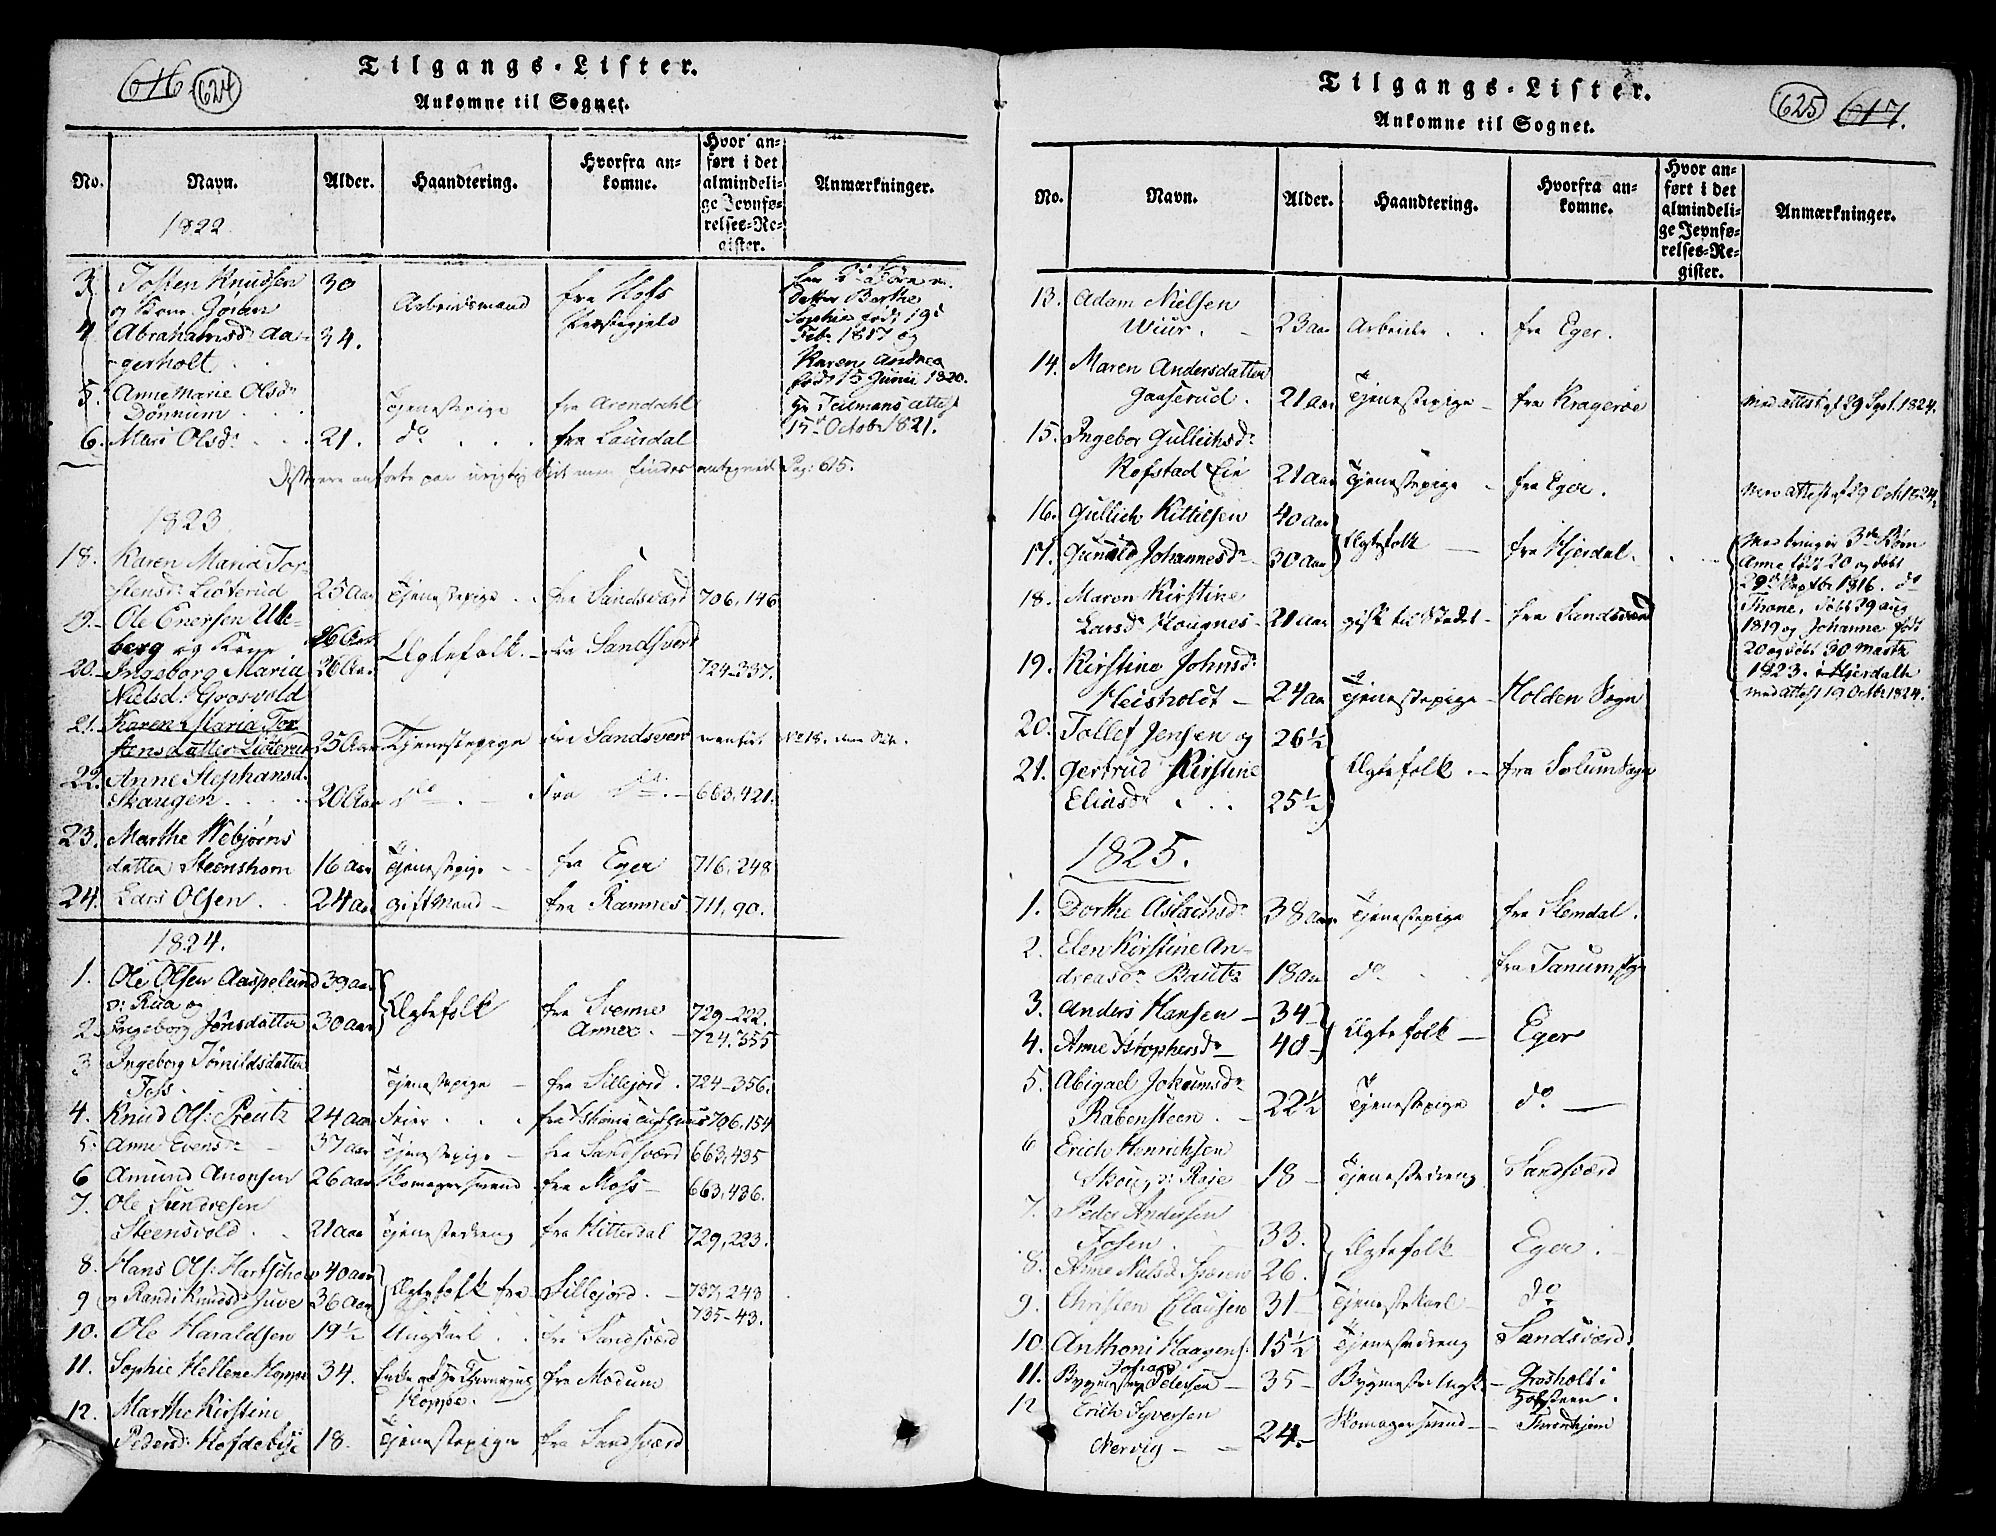 616 624
Tilgangs-Lister.
Ankomne til Sognet.
No. Navn. Alder. Haandtering. Hvorfra ankomne. Hvor anført i det almindelige Jevnførelses-Register. Anmærkninger.
1822
3. Tosten Knudsen 30 Arbeidsmand fra Hofs
og Kone Jøran Præstegjeld
4. Abrahamsd: Aa- 34.
gerholt
Datter Berthe
Sophie født 19
Feb. 1817 og
Karen Andrea
født 15 Junii 1820.
5. Anne Marie Olsdr Tjenestepige fra Arendahl
Dønnum
6. Mari Olsdr 21. do fra Laurdal
17 Octobr 1821.
findes antegned Pag: 615.
1823
18. Karen Maria Tor-
stensdr Liøterud 25 Aar Tjenestepige fra Sandsværd 706, 146
19. Ole Enersen Ulle-
berg og Kone 26 Aar Ægtefolk fra Sandsverd
20. Ingeborg Maria 26 Aar 724-337.
Nielsd: Grosvold
21. Karen Maria Tor-
stens Datter Liøterud 25 Aar Tjenestepige fra Sandsverd No 18.
22. Anne Stephansd.
Skaugen 20 Aar do fra do 663, 421.
23. Marthe Webjørns
datter Steenshorn 16 aar Tjenestepige fra Eger 716, 248
24. Lars Olsen 24 aar gift Mand fra Ramnes 711, 90.
1824.
1. Ole Olsen Aaspelund 39 aar Ægtefolk fra Svenne 729-222.
v: Rua og Annex.
2. Ingeborg Jønsdatter 30 aar 724.355
3. Ingeborg Tomildsdatter
Foss Tjenestepige fra Sillejord 724-356.
4. Knud Ols: Preutz 24 aar Feier 706, 154
5. Anne Evensdr 37 aar Tjenestepige fra Sandsværd 663, 435
6. Amund Anonsen 26 aar Skomagersvend fra Moss 663, 436.
7. Ole Sundresen
Steensvold 21 aar Tjenestedreng fra Hitterdal 729, 223.
8. Hans Ols: Hartschow 40 aar Ægtefolk fra Sillejord 737, 243
9. og Randi Knudsdr Juve 36 aar 735-43.
10. Ole Haraldsen 19½ Ungkarl fra Sandsværd
11. Sophie Hellene Hoppe 34. Enke fra Modum
Hoppe.
12. Marthe Kirstine
Pedersd: Hofdebye 18. Tjenestepige fra Sandsværd
625 617.
Tilgangs-Lister.
Ankomne til Sognet.
No. Navn. Alder. Haandtering. Hvorfra ankomne. Hvor anført i det almindelige Jevnførelses-Register. Anmærkninger.
13. Adam Nielsen
Wiur. 23 aar Arbeider fra Eger.
14. Maren Andersdatter
Gaaserud. 21 aar Tjenestepige fra Kragerøe Med attest af 29 Spt. 1824.
15. Ingebor Gullichsdr
Rofstad Eie 21 aar Tjenestepige fra Eger. Med attest af 29 Oct 1824
16. Gullich Kittilsen 40 aar Ægtefolk fra Hjerdal. Medbringer 3de Børn
17. Gunild Johannesdr 30 aar Anne født 20 og døbt
29de Septbr 1816. do
Thone, døbt 29 aug
1819 og Johanne født
20 og døbt 30 Martz
1823. i Hjerdahl
med attest 19 Octbr 1824.
18. Maren Kirstine
Larsdr Hougnes 21 aar gift til Stedet fra Sandsværd
19. Kirstine Johnsdr
Heisholdt 24 aar Tjenestepige Holden Sogn
20. Tollef Jensen og 26½ Ægtefolk fra Solum Sogn
21. Gertrud Kirstine
Eliasdr 25½
1825.
1. Dorthe Aslachsdr 38 aar Tjenestepige fra Slemdal.
2. Elen Kirstine An-
dreasdr Bautz 18 aar do fra Tanum
3. Anders Hansen 34 Ægtefolk Eger
4. Anne Xstophersdr 40
5. Abigael Jokumsdr
Rabensteen 22½ Tjenestepige do
6. Erich Henrichsen
Skoug v: Raje 18 Tjenestedreng Sandsværd
7. Peder Andersen
Fosen 33. Ægtefolk Eger.
8. Anne Nielsd. Sporen 26.
9. Christen Clausen 31 Tjenestekarl do
10. Anthoni Haagens: 15½ Tjenestedreng Sandsværd.
11. Bygmester Johan Petersen 35 Grosholt i
Holsteen.
12. Erich Syversen
Nervig 24 Skomagersvend Throndhjem